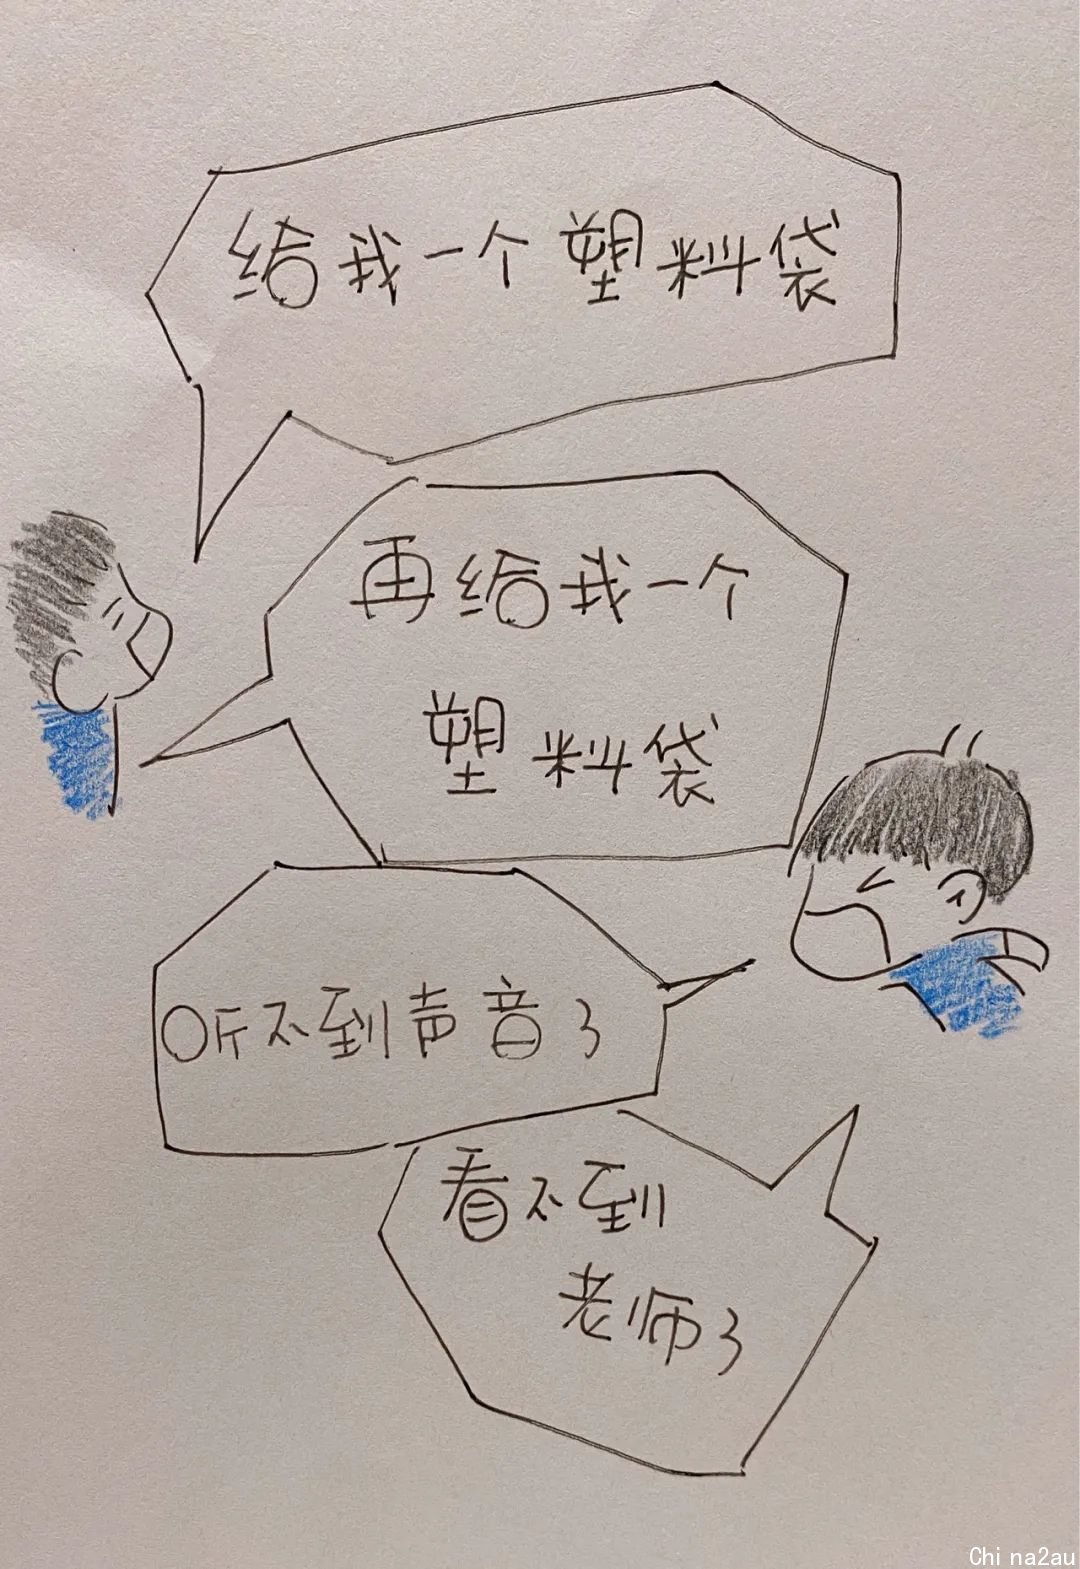 给我一个塑料袋
再给我一个
塑料袋
听不到声音了
看不到
老师了
Chi na2au